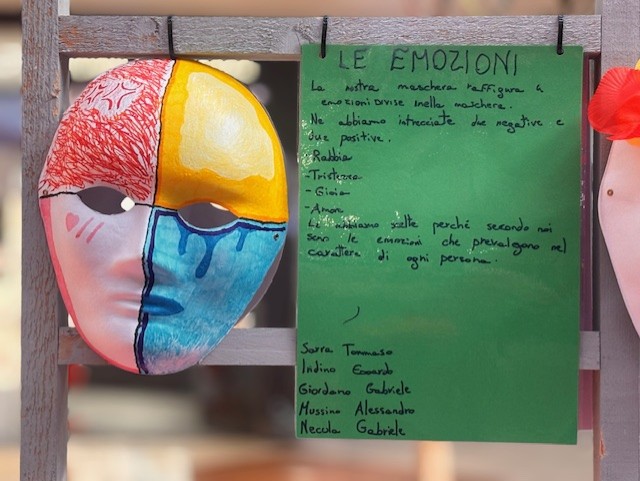 LE EMOZIONI
La nostra maschera raffigura 4
emozioni DIVISE nella maschera.
Ne abbiamo intrecciate due negative e
due positive.
- Rabbia
- Tristezza
- Gioia
- Amore
Le abbiamo scelte perché secondo noi
sono le emozioni che prevalgono nel
carattere di ogni persona.
Sarra Tommaso
Indino Edoardo
Giordano Gabriele
Mussino Alessandro
Necula Gabriele